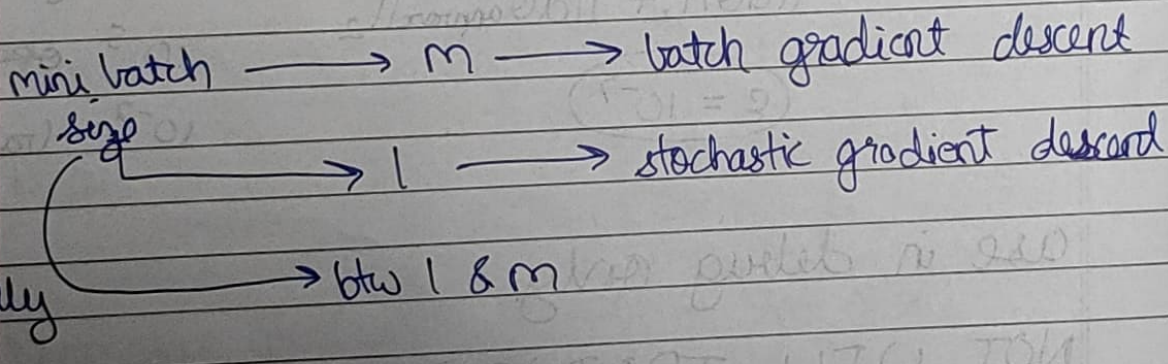 mini batch → m → batch gradient descent
size → 1 → stochastic gradient descend
→ btw 1 & m
lly